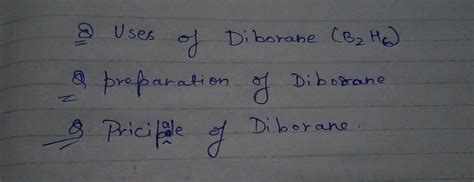 Q Uses of Diborane (B2H6)
Q preparation of Diborane
Q Priciple of Diborane.